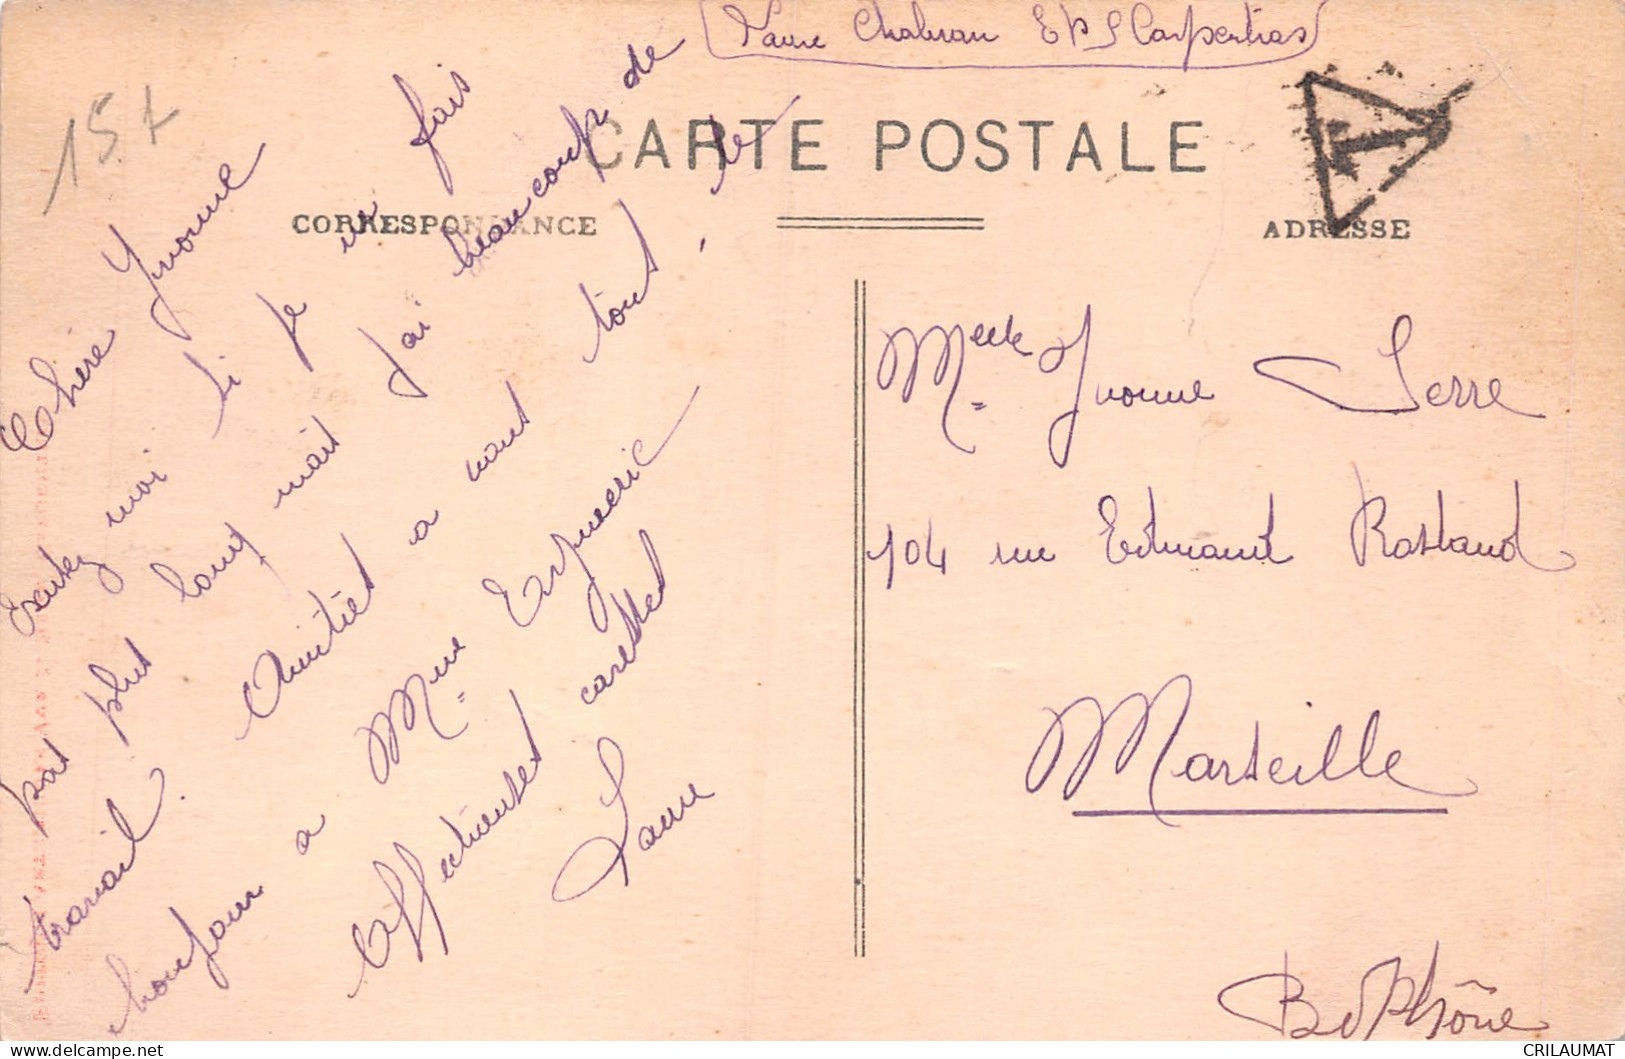 Laure Chabran E P S Carpentras
15 f
CARTE POSTALE
CORRESPONDANCE
ADRESSE
T
Chère Yvonne
moi si je ne fais
pas plus long mais j'ai beaucoup de
travail. Amitiés a vous tous, le
bonjour a Mme
Affectueuses caresses
Laure
Melle Yvonne Serre
104 rue Edmond Rostand
Marseille
B d Rhône
CRILAUMAT